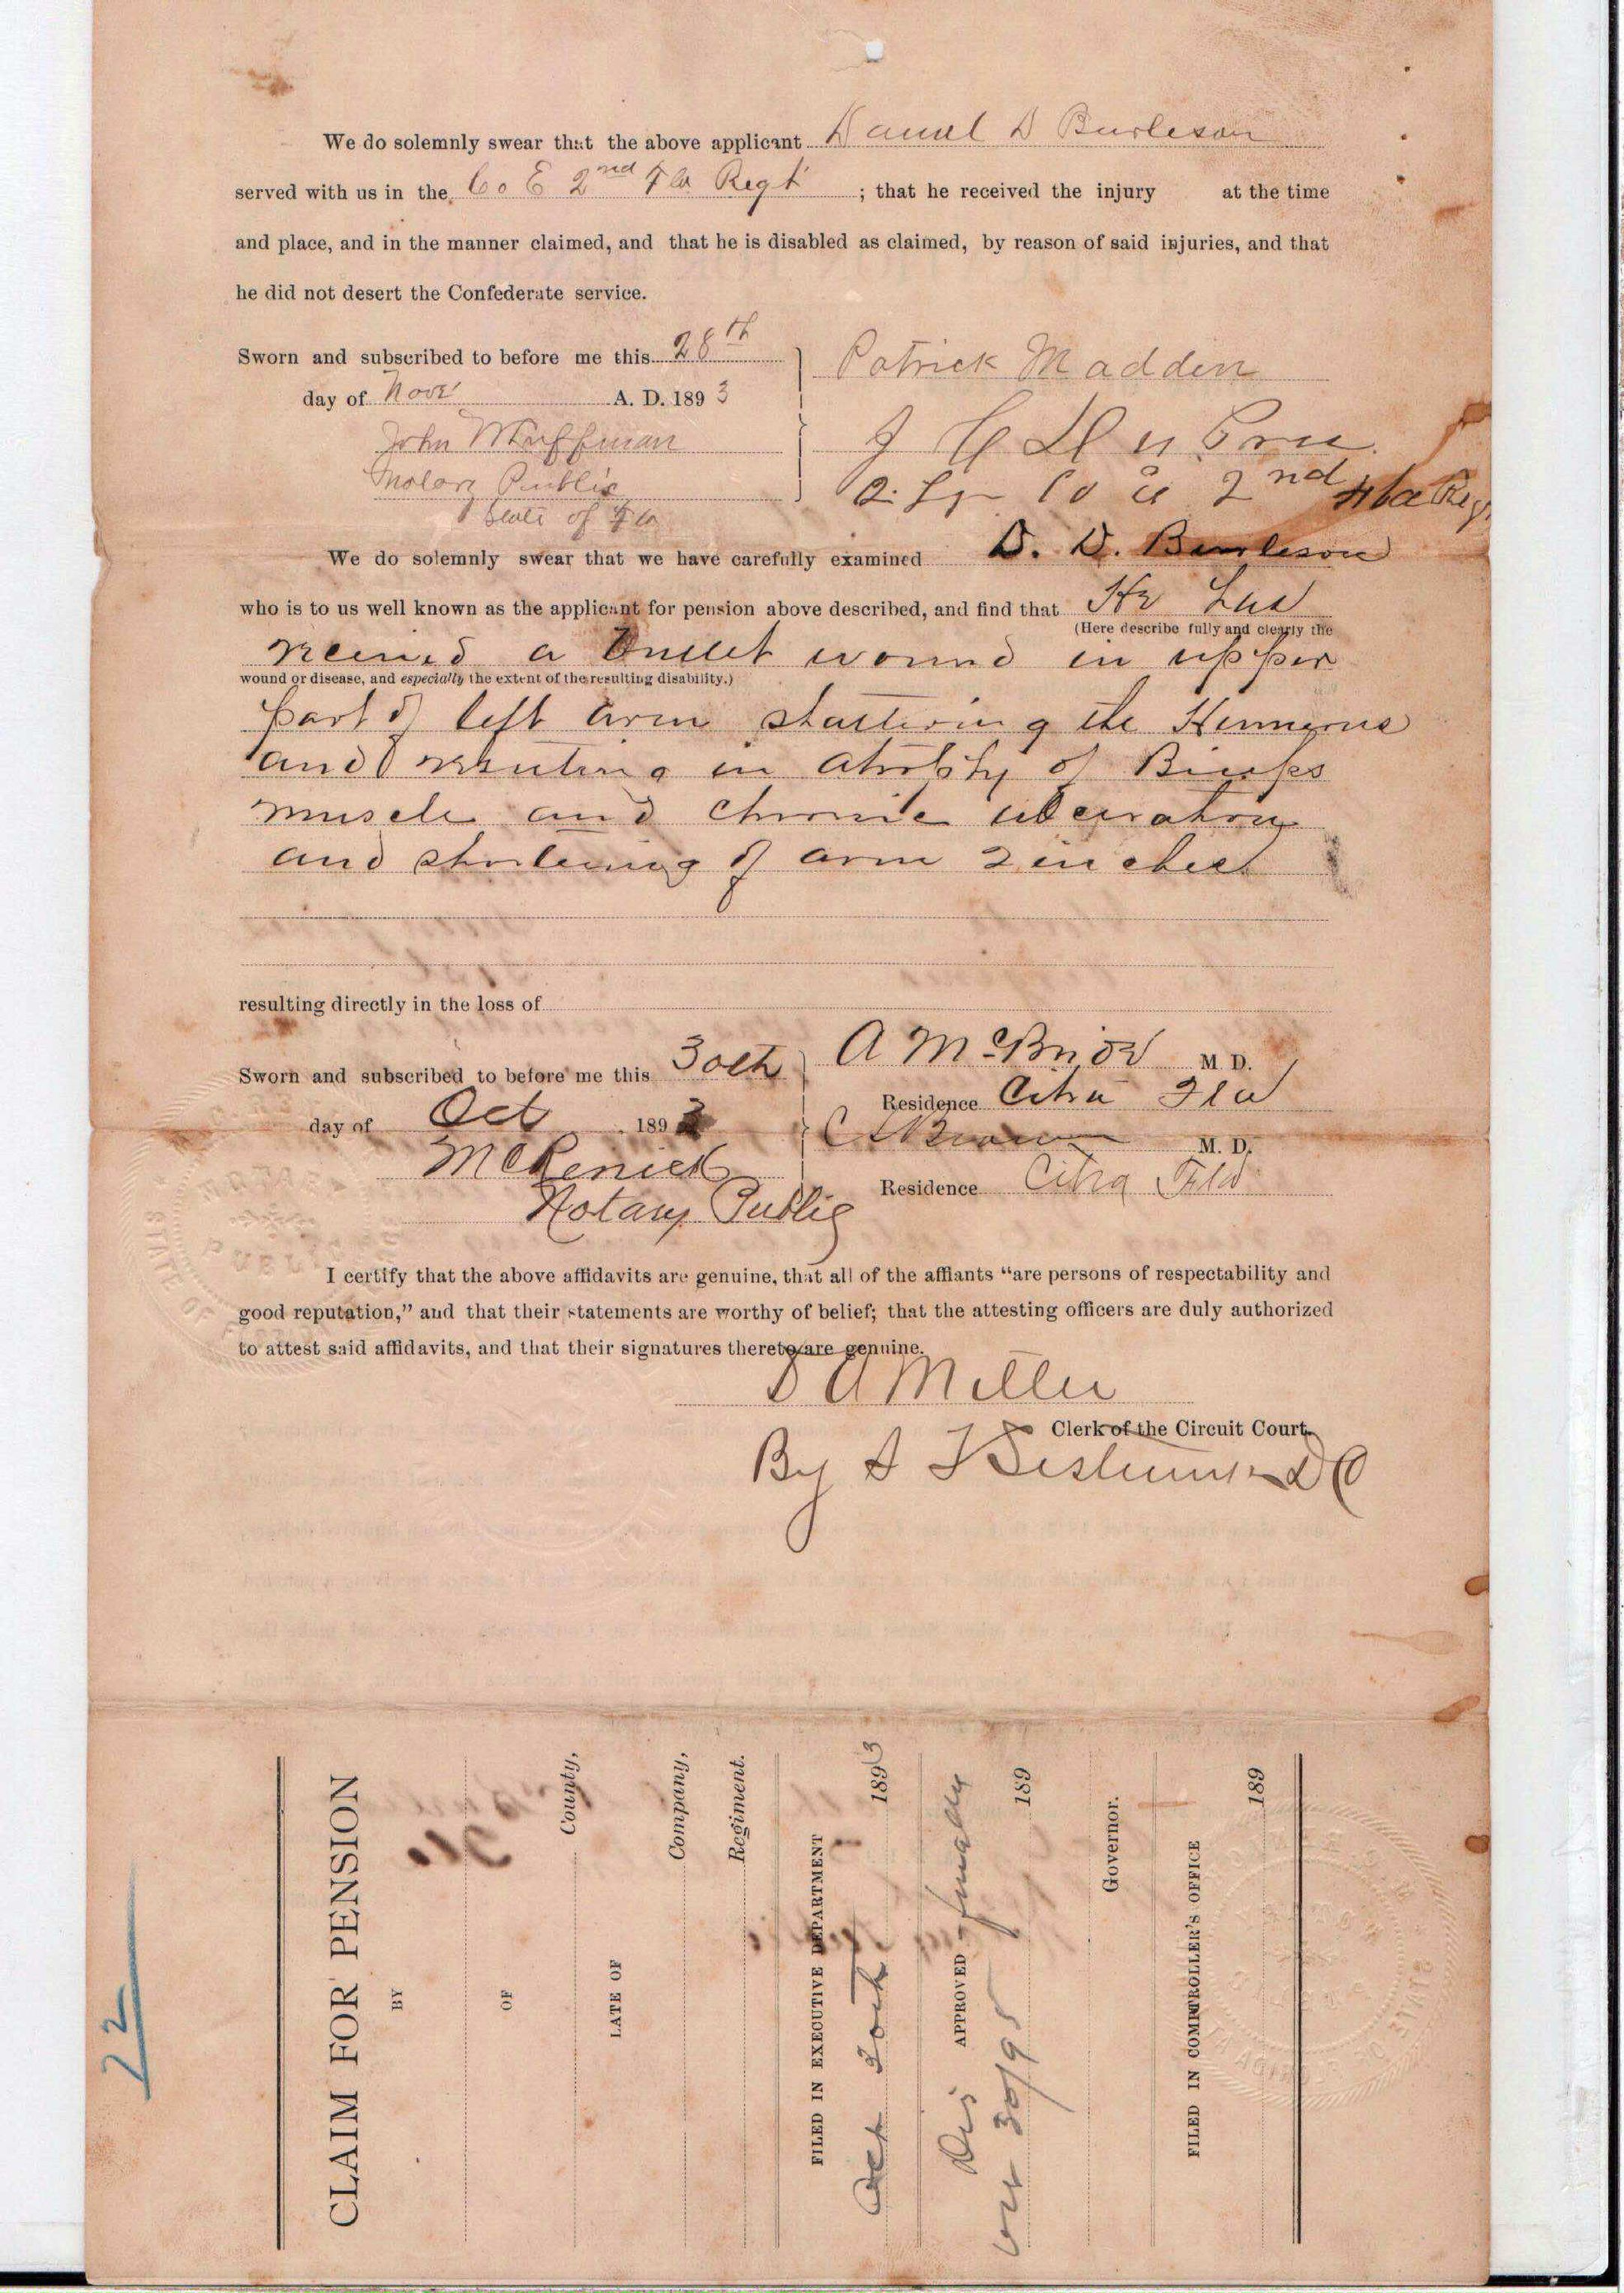 We do solemnly swear that the above applicant Daniel D Burleson
served with us in the Co E 2nd Fla Regt ; that he received the injury at the time
and place, and in the manner claimed, and that he is disabled as claimed, by reason of said injuries, and that
he did not desert the Confederate service.
Sworn and subscribed to before me this 28th
day of Novr A. D. 1893
John M Huffman
Notary Public
State of Fla
Patrick Madden
2nd Fla Reg
We do solemnly swear that we have carefully examined D. D. Burleson
who is to us well known as the applicant for pension above described, and find that He has
(Here describe fully and clearly the
received a Bullet wound in upper
wound or disease, and especially the extent of the resulting disability.)
part of left arm shattering the Humerus
and resulting in atrophy of Biceps
muscle and chronic ulceration
and shortening of arm 2 inches
resulting directly in the loss of
Sworn and subscribed to before me this 30th
day of Oct 1893
McRenick
Notary Public
A McBride M D.
Residence Citra Fla
C Brown M. D.
Residence Citra Fla
I certify that the above affidavits are genuine, that all of the affiants “are persons of respectability and
good reputation,” and that their statements are worthy of belief; that the attesting officers are duly authorized
to attest said affidavits, and that their signatures thereto are genuine.
D A Miller
Clerk of the Circuit Court.
By S F D C
22
CLAIM FOR PENSION
BY
OF
County,
LATE OF
Company,
Regiment.
FILED IN EXECUTIVE DEPARTMENT
Oct 30th 1893
APPROVED
Dis finally
Oct 30/95 189
Governor.
FILED IN COMPTROLLER'S OFFICE
189